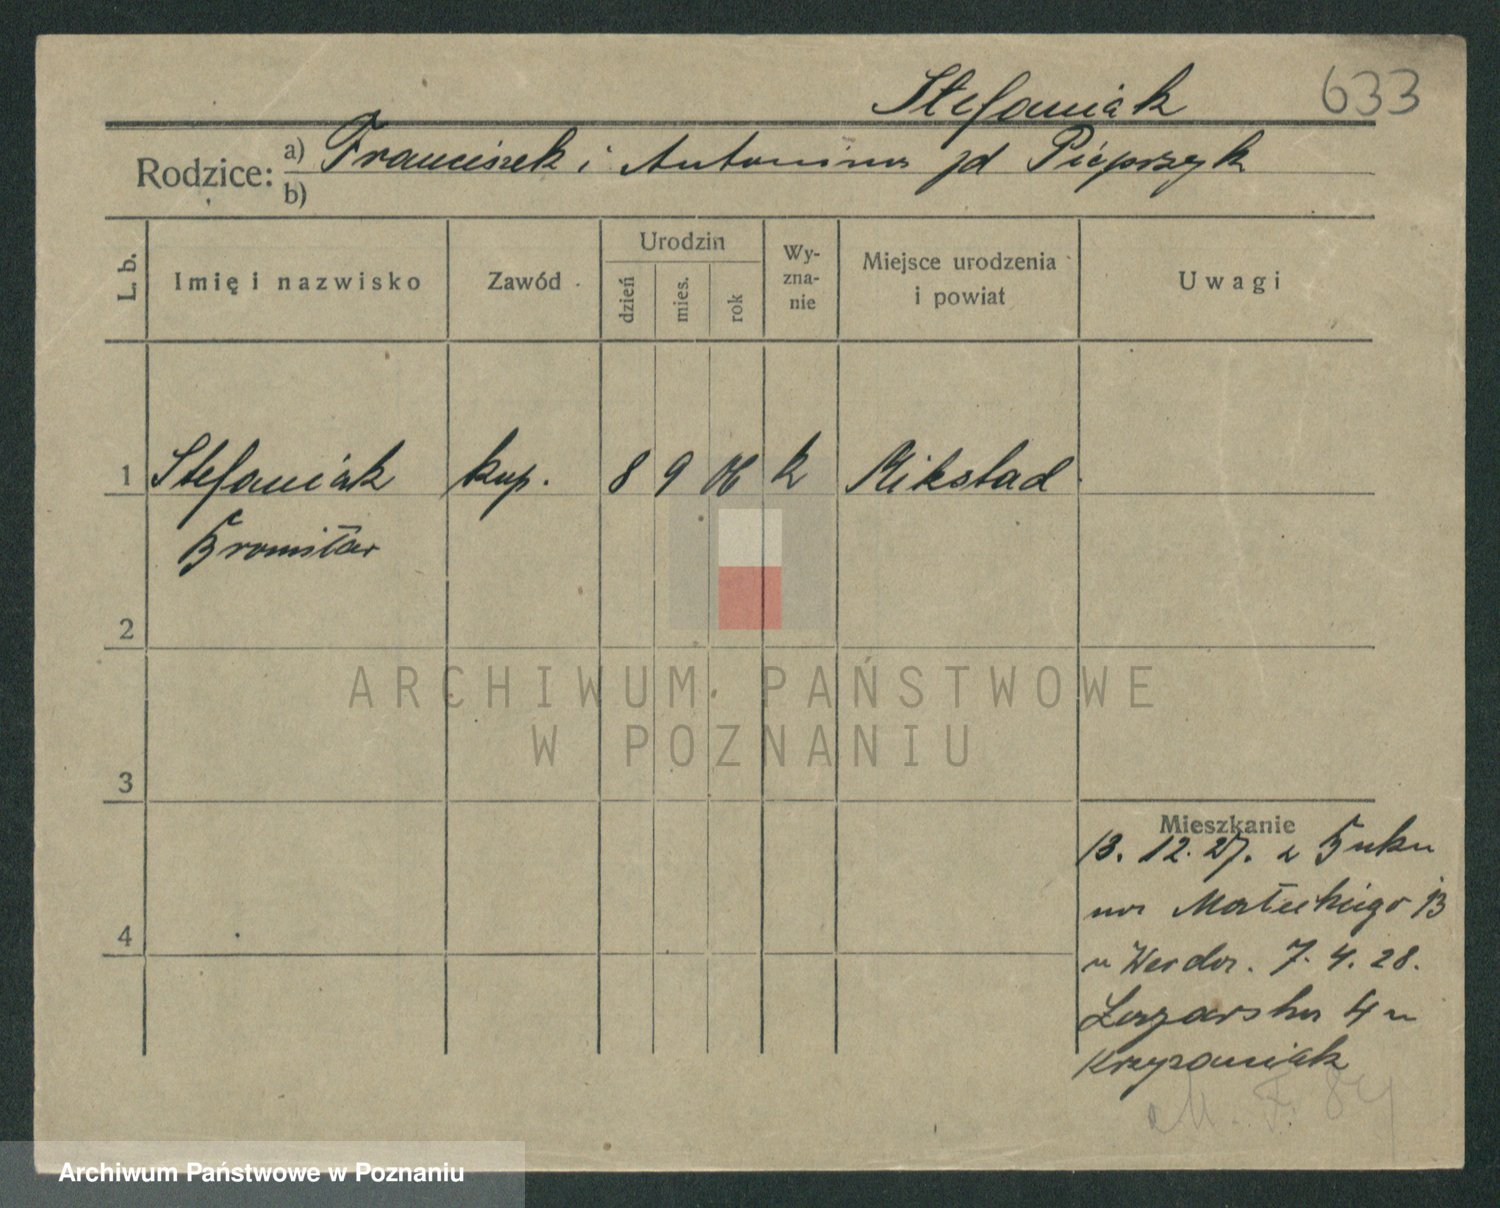 Stefaniak 633
Rodzice: a) Franciszek i Antonina zd Pieprzyk
b)
L. b. Imię i nazwisko Zawód Urodzin dzień mies. rok Wyznanie Miejsce urodzenia i powiat Uwagi
1 Stefaniak kup. 8 9 06 k Mikstad
Bronisław
2
3
4
Mieszkanie
13. 12. 27. z Buku
na Małeckiego 13
u Werda. 7. 4. 28.
Łazarska 4 u
Krzyżaniak
M. F. 84
ARCHIWUM PAŃSTWOWE
W POZNANIU
Archiwum Państwowe w Poznaniu